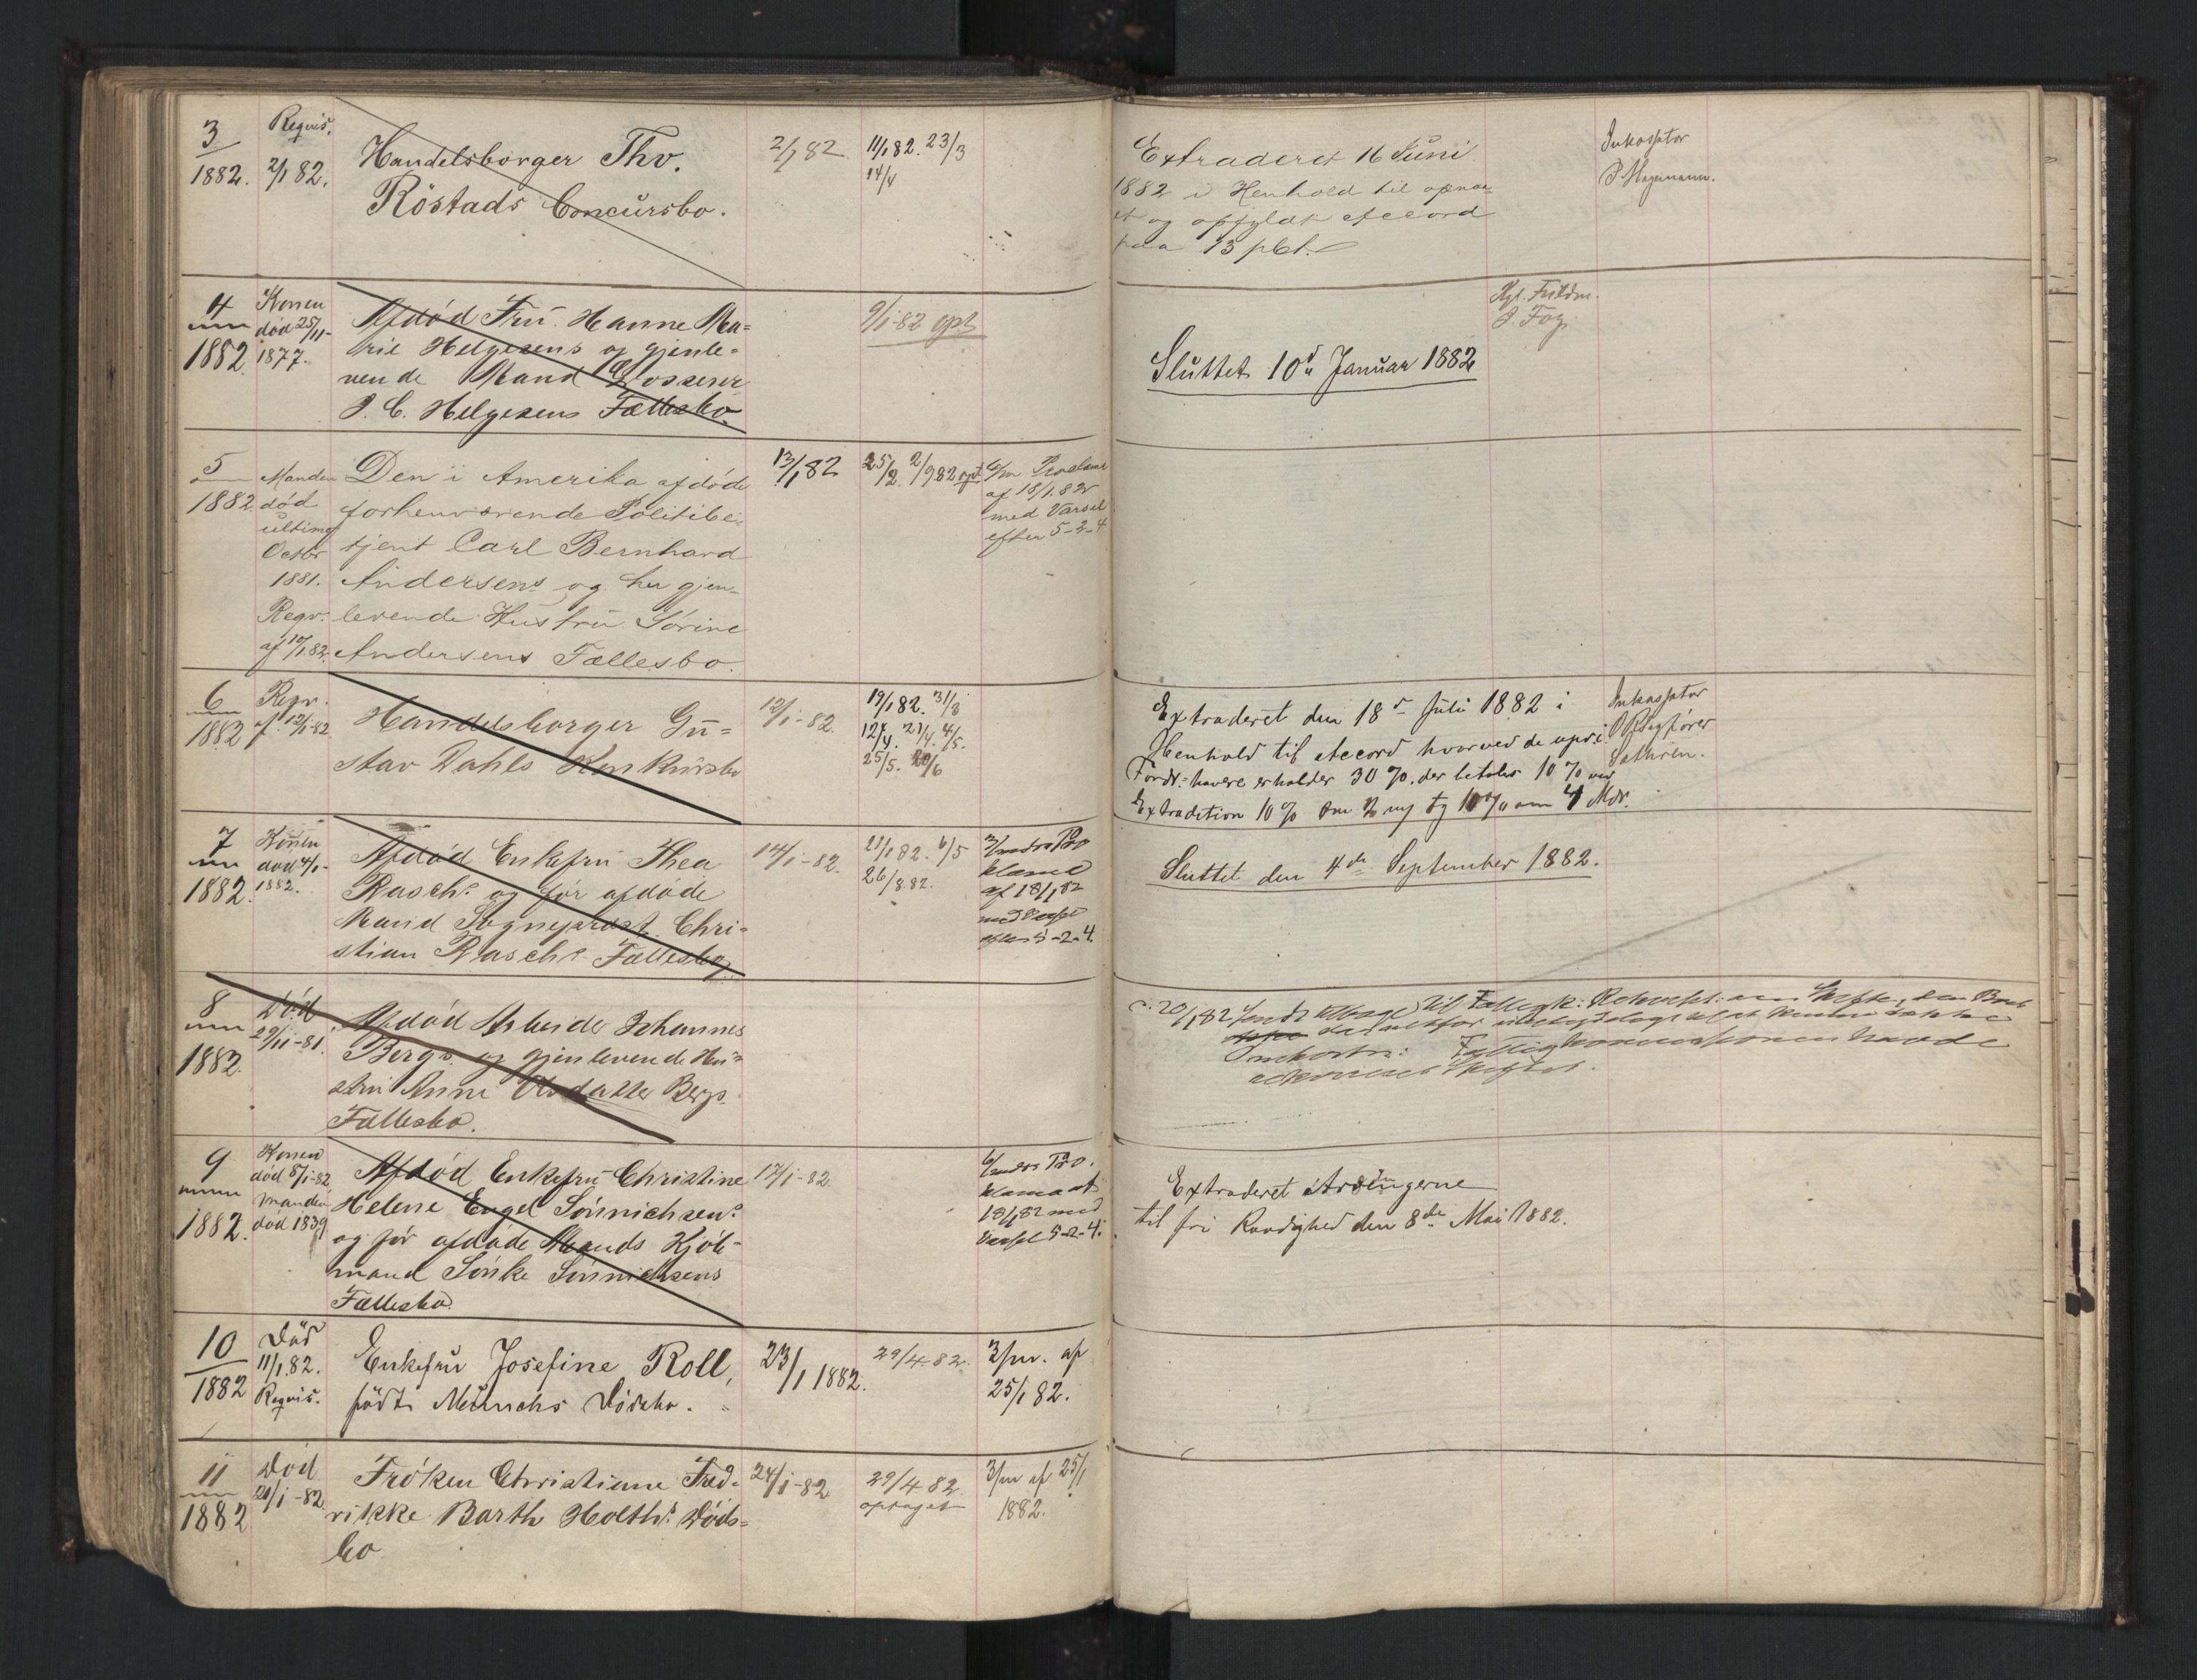 3
1882.
Reqvis.
2/1 82.
Handelsborger Thv.
Röstads Concursbo.
2/1 82
11/1 82. 23/3
14/4
Extraderet 16 Juni
1882 i Henhold til opnaa-
et og opfyldt Accord
paa 13 pCt.
4
1882
Konen
død 25/11-
1877.
Afdød Fru Hanne Ma=
rie Helgesens og gjenle=
vende Mand
J. C. Helgesens Fællesbo.
9/1-82 opt
Sluttet 10de Januar 1882
5
1882
Manden
død
ultimo
Octbr
1881.
Reqv.
af 10/1.82.
Den i Amerika afdøde
forhenværende Politibe-
tjent Carl Bernhard
Andersens og her gjen-
levende Hustru Sørine
Andersens Fællesbo.
13/1 82
25/2. 2/9 82 opt
6/m Proclama
af 18/1.82
med Varsel
efter 5-2-4
6
1882
Reqv.
af 12/1-82
Handelsborger Gu=
stav Dahls Konkursbo
12/1-82.
19/1 82. 31/3
12/4. 21/4. 4/5.
25/5. 20/6
Extraderet den 18de Juli 1882 i
Henhold til Accord hvorved de upri.
Fordr.=havere erholder 30 %. der betales 10 % ved
Extradition 10 % om 2 og 10 % om 4 Mdr.
Inkassator
7
1882.
Konen
død 4/1-
1882.
Afdød Enkefru Thea
Raschs og før afdøde
Mand Sogneprest Chri=
stian Raschs Fællesbo
14/1-82.
21/1 82. 6/5
26/8.82.
Pro
klama
af 18/1 82
med Varsel
efter 5-2-4.
Sluttet den 4de September 1882.
8
1882.
Død
29/11-81.
Afdød Arbeider Johannes
Bergs og gjenlevende Hu=
stru Anne Olsdatter Bergs
Fællesbo.
20/1 82
9
1882.
Konen
død 8/1-82
Manden
død 1839
Afdød Enkefru Christine
Helene Engel Sönnichsens
og før afdøde Mands Kjøb-
mand Sönke Sönnichsens
Fællesbo.
17/1-82.
Pro.
klama af
18/1 82 med
Varsel 5-2-4.
Extraderet Arvingerne
til fri Raadighed den 8de Mai 1882.
10
1882
Død
11/1.82.
Reqvis.
Enkefru Josefine Roll,
født Münchs Dødsbo.
23/1 1882.
29/4-82.
3/m. af
25/1 82.
11
1882
Død
21/1-82.
Frøken Christiane Fred-
rikke Barth Holths Døds=
bo
24/1-82
29/4 82
optaget
3/m af 25/1
1882.